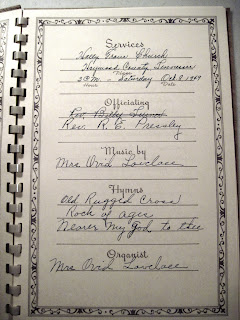 Services
Holly Grove Church
Haywood County Tennessee
Place
2 P.M. - Saturday Oct 8, 1949
Hour Date
Officiating
Rev. Billy
Rev. R. E. Pressley
Music by
Mrs Ovid Lovelace
Hymns
Old Rugged Cross
Rock of ages
Nearer My God to thee
Organist
Mrs Ovid Lovelace